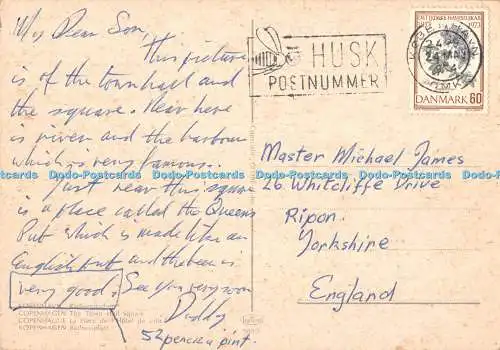 My Dear Son,
This picture
is of the townhall and
the square. Near here
is river and the harbour
which is very famous.
Just near this square
is a place called the Queens
Put which is made like an
English put and the beer is
very good. See you very soon
Daddy
52 pence a pint.
KØBENHAVN Rådhuspladsen
COPENHAGEN The Town Hall square
COPENHAGUE La Place de l'Hôtel de ville
KOPENHAGEN Rathausplatz
HUSK
POSTNUMMER
KØBENHAVN
OMK
1973
DANMARK 60
Master Michael James
26 Whitcliffe Drive
Ripon.
Yorkshire
England
Dodo-Postcards Dodo-Postcards Dodo-Postcards Dodo-Postcards